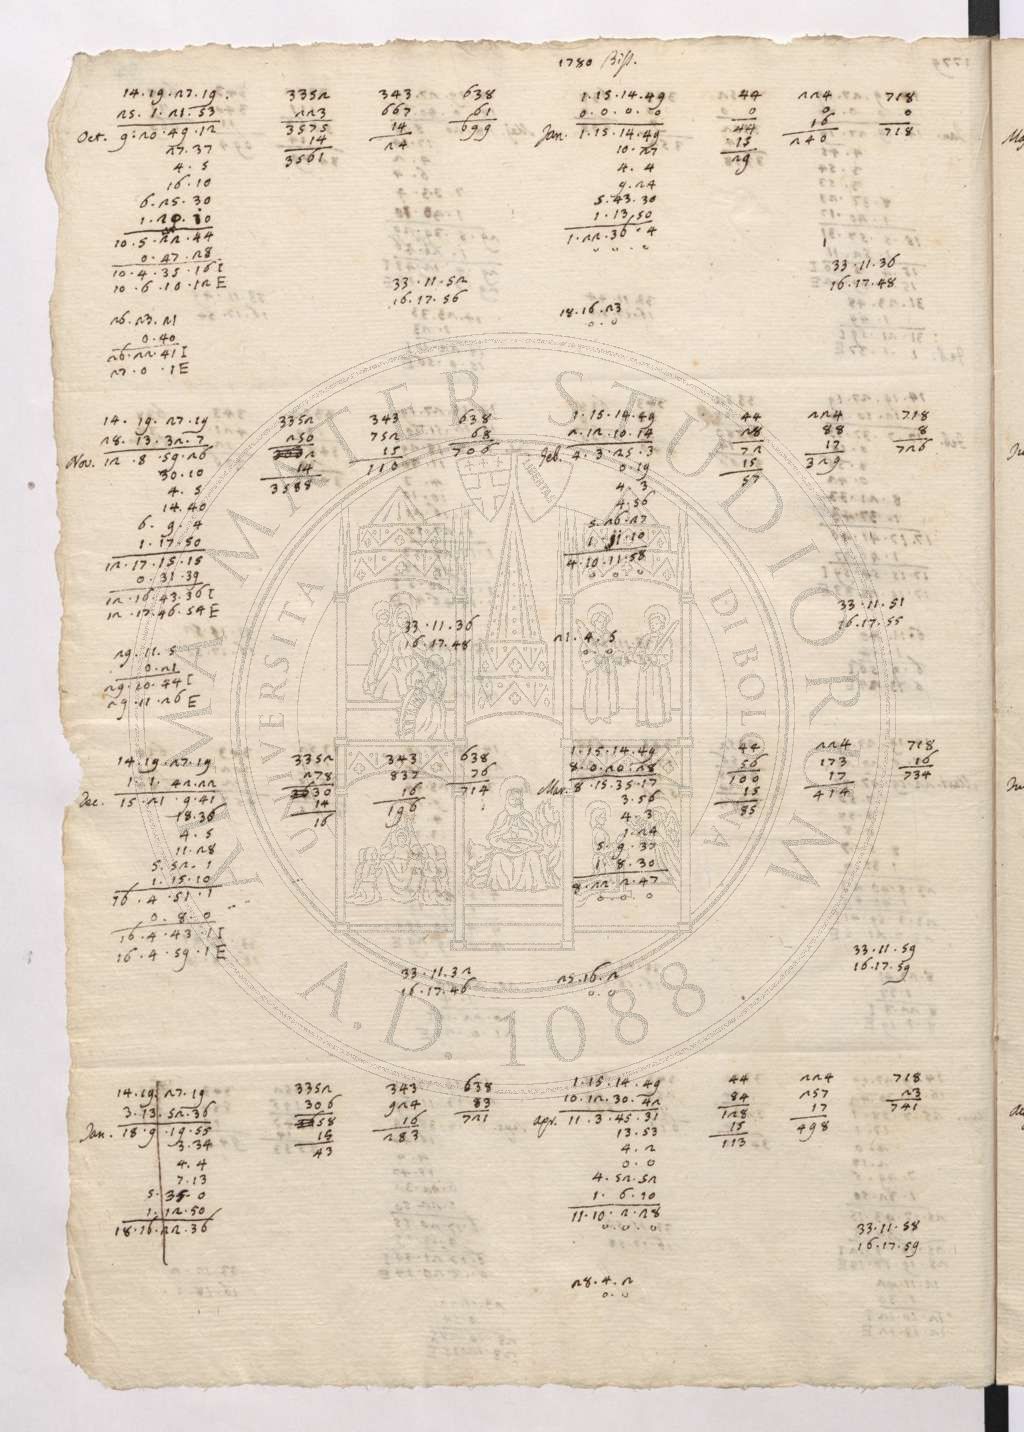 1780 Biss.
14.19.27.19. 3352 343 638
25.1.21.53 223 667 61
Oct. 9.20.49.12 3575 14 699
27.37 14 24
4.5 3561
16.10
6.25.30
10.5.22.44
0.47.28
10.4.35.16 I
10.6.10.12 E
33.11.52
16.17.56
26.23.21
0.40
26.22.41 I
27.0.1 E
1.15.14.49 44 224 718
0.0.0.0 0 0 0
Jan. 1.15.14.49 44 16 718
10.27 15 240
4.4 29
9.24
5.43.30
1.13.50
1.22.36.4
0.0.0
33.11.36
16.17.48
18.16.23
0.0
14.19.27.19 3352 343 638
28.13.32.7 250 752 68
Nov. 12.8.59.26 15 706
30.10 14 110
4.5 3588
14.40
6.9.4
1.17.50
12.17.15.15
0.31.39
12.16.43.36 I
12.17.46.54 E
33.11.36
16.17.48
29.11.5
0.21
29.10.44 I
29.11.26 E
1.15.14.49 44 224 718
2.12.10.14 28 88 8
Feb. 4.3.25.3 72 17 726
0.19 15 329
4.3 57
4.56
5.26.27
1.11.10
4.10.11.58
0.0.0
33.11.51
16.17.55
21.4.5
0.0
14.19.27.19 3352 343 638
1.1.42.22 278 837 76
Dec. 15.21.9.41 3630 16 714
18.36 14 196
4.5 16
11.28
5.52.1
1.15.10
16.4.51.1
0.8.0
16.4.43.1 I
16.4.59.1 E
33.11.32
16.17.46
1.15.14.49 44 224 718
8.0.20.28 56 173 16
Mar. 8.15.35.17 100 17 734
3.56 15 414
4.3 85
1.24
5.9.37
1.8.30
8.22.2.47
0.0.0
33.11.59
16.17.59
25.16.2
0.0
14.19.27.19 3352 343 638
3.13.52.36 306 924 83
Jan. 18.9.19.55 3658 16 721
3.34 15 283
4.4 43
7.13
5.35.0
1.12.50
18.16.22.36
1.15.14.49 44 224 718
10.12.30.42 84 257 23
apr. 11.3.45.31 128 17 741
13.53 15 498
4.2 113
0.0
4.52.52
1.6.10
11.10.2.28
0.0.0
33.11.58
16.17.59
28.4.2
0.0
ALMA MATER STUDIORUM
UNIVERSITÀ DI BOLOGNA
A.D. 1088